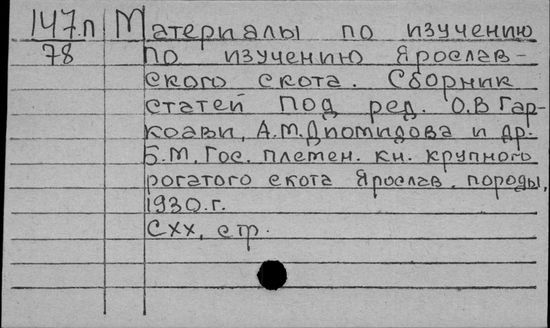 147.п Материалы по изучению
78 по изучению Ярослав-
ского скота. Сборник
статей под ред. О.В Гар-
коави, А.М.Диомидова и др.
Б.М. Гос. племен. кн. крупного
рогатого скота Ярослав. породы,
1930.г.
CXX, стр.